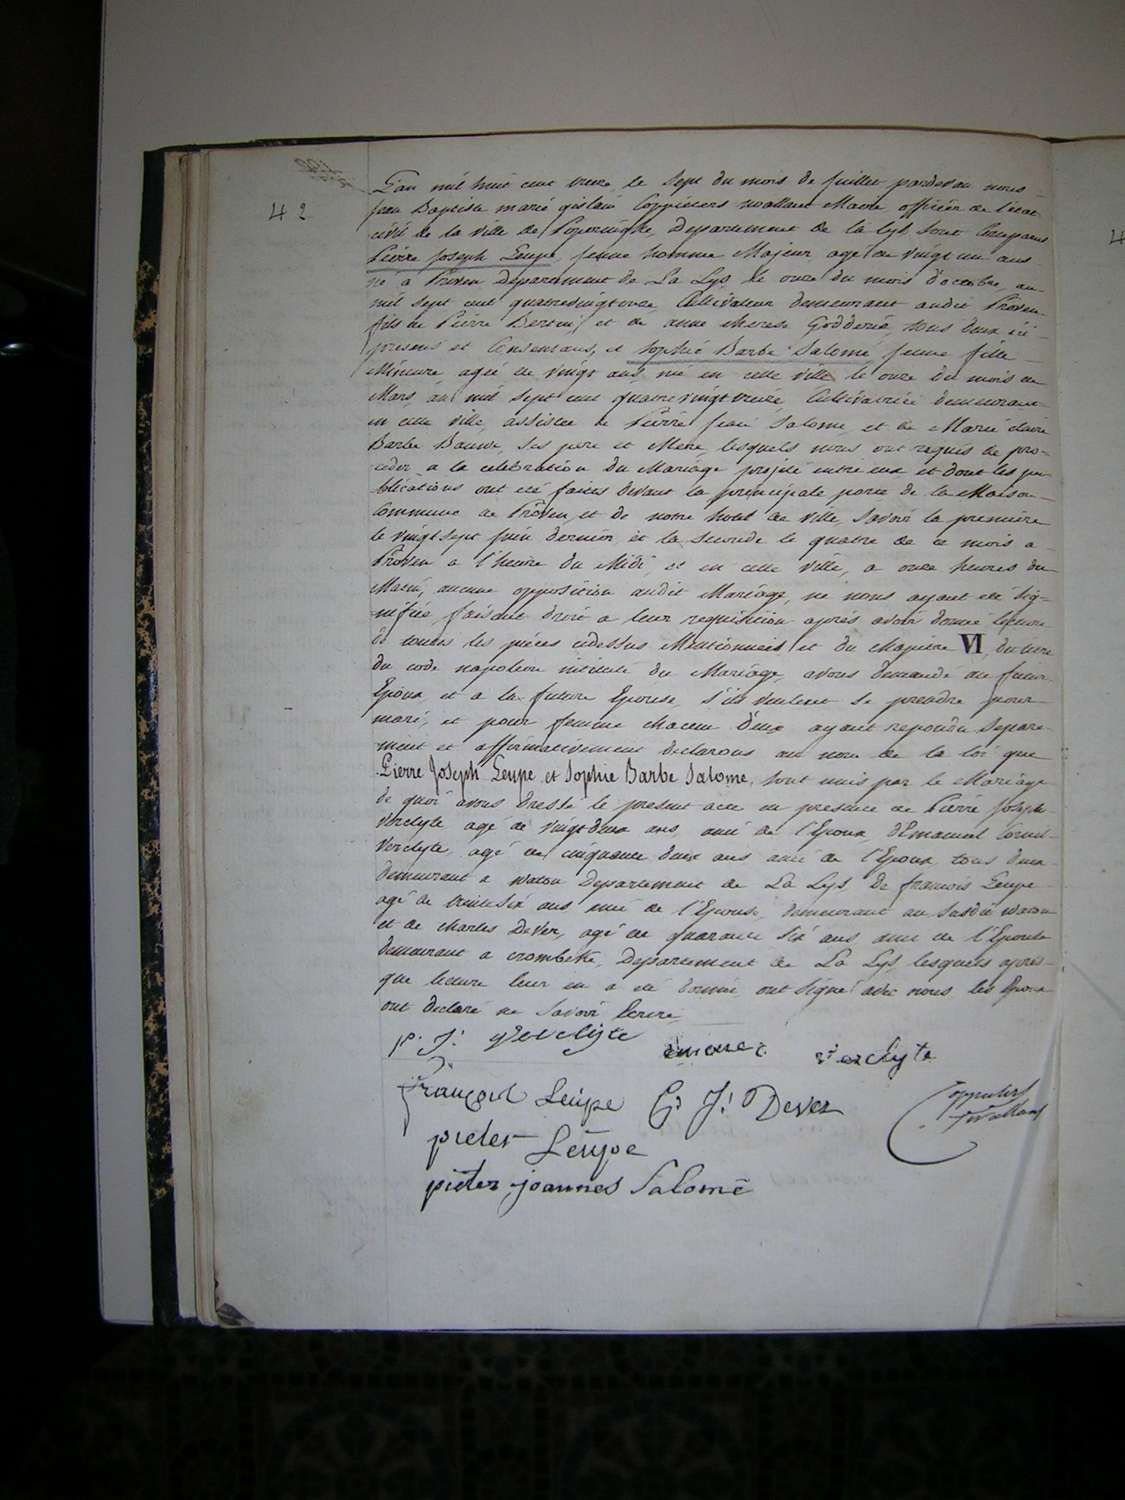 42
L'an mil huit cent treize, le sept du mois de Juillet pardevan nous
Jean Baptiste marie gislain Coppieters wallant Maire officier de l'état
civil de la ville de Poperinghe Departement de la Lys sont Comparus
Pierre Joseph Leupe, jeune homme Majeur agé de vingt un ans
né à Proven departement de La Lys, le onze du mois d'octobre, an
mil sept cent quatrevingt onze, Cultivateur demeurant audit Proven
fils de Pierre et de anne therese Godderis, tous deux ici
presens et Consentans, et Sophie Barbe Salomé, jeune fille
Mineure agée de vingt ans, née en cette ville le onze du mois de
Mars, an mil sept cent quatre vingt treize Cultivatrice demeurant
en cette ville, assistée de Pierre Jean Salomé et de Marie claire
Barbe Bauwe, ses pere et Mere, lesquels nous ont requis de pro-
ceder a la celebration du Mariage projeté entre eux et dont les pu-
blications ont été faites devant la principale porte de la Maison
Commune de Proven, et de notre hotel de ville, Savoir la premiere
le vingt sept juin dernier, et la seconde le quatre de ce mois a
Proven a l'heure du Midi, et en cette ville, a onze heures du
Matin, aucune opposition audit Mariage, ne nous ayant été sig-
nifiée, faisant droit a leur requisition après avoir donné lecture
de toutes les pièces cidessus Mentionnées et du chapitre VI, du titre
du code napoleon intitulé du Mariage, avons demandé au futur
Epoux et a la future Epouse, s'ils veulent se prendre pour
mari, et pour femme chacun d'eux ayant repondu separe-
ment et affirmativement declarons au nom de la loi que
Pierre Joseph Leupe et Sophie Barbe Salome, sont unis par le Mariage
de quoi avons dressé le present acte en presence de Pierre Joseph
Verclyte agé de vingt deux ans, ami de l'Epoux, d'Emanuel
Verclyte agé de cinquante deux ans ami de l'Epoux tous deux
demeurant a Watou Departement de La Lys, de francois Leupe
agé de trente six ans ami de l'Epouse, demeurant au susdit Watou
et de charles Dever, agé de quarante six ans ami de l'Epouse
demeurant a crombeke, Departement de La Lys lesquels apres
que lecture leur en a été donné, ont signé avec nous les Epoux
ont declaré ne savoir Ecrire
p. J. Verclyte
Verclyte
françois Leupe C: J: Dever
Coppieters
Wallant
pieter Leupe
pieter joannes Salomé